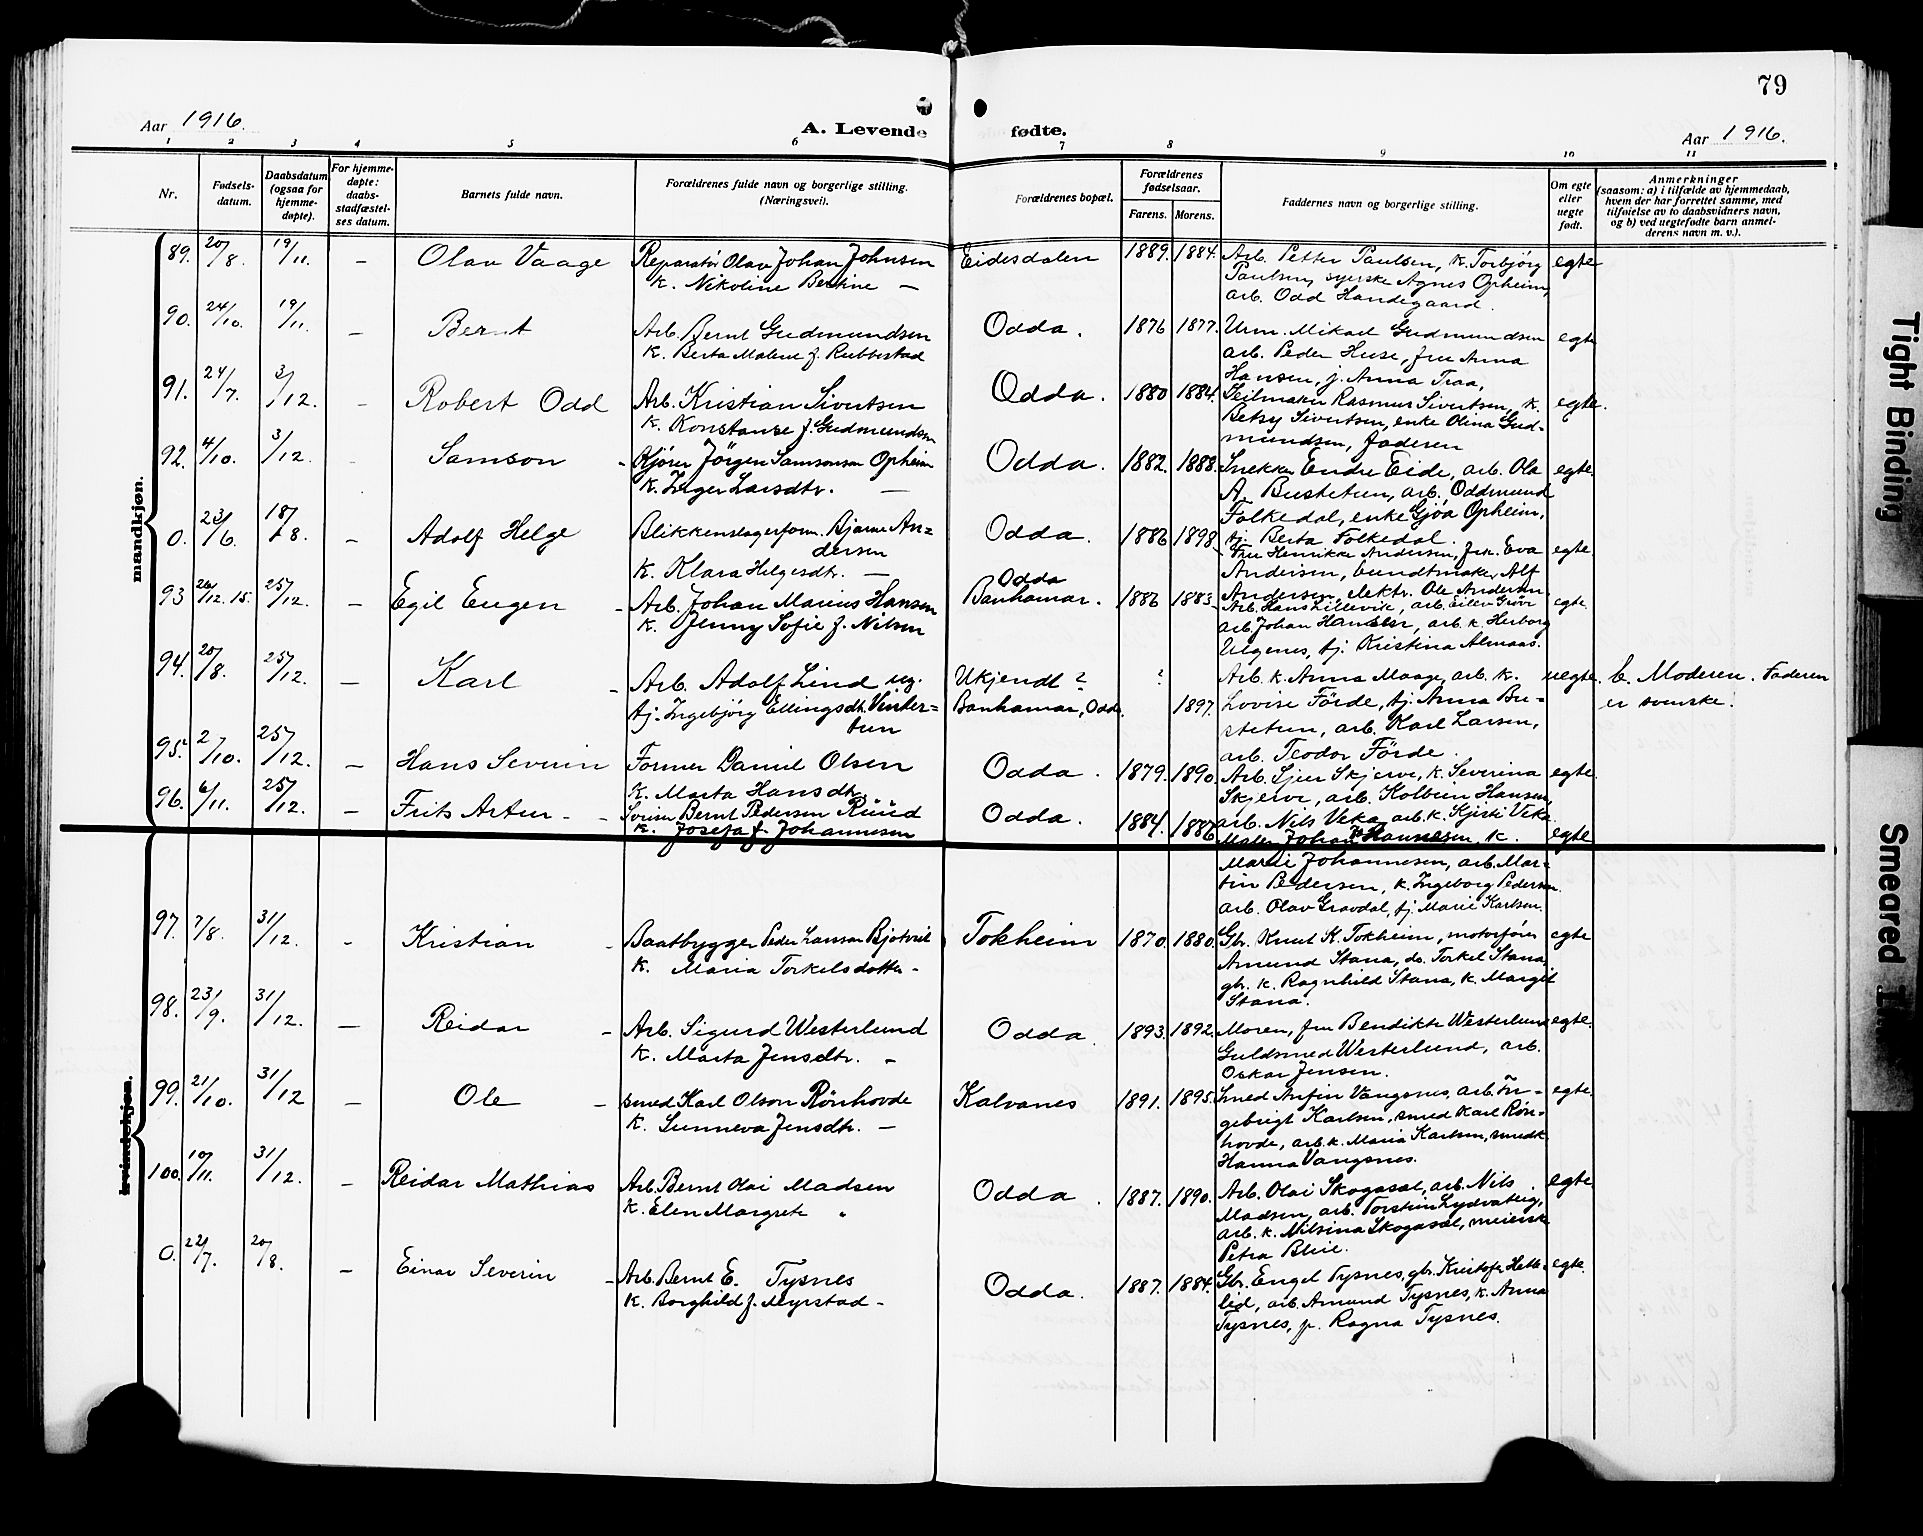 79
Aar 1916.
A. Levende fødte.
Aar 1916.
1 2 3 4 5 6 7 8 9 10 11
Nr.
Fødsels-
datum.
Daabsdatum
(ogsaa for
hjemme-
døpte).
For hjemme-
døpte:
daabs-
stadfæstel-
ses datum.
Barnets fulde navn.
Forældrenes fulde navn og borgerlige stilling.
(Næringsveil).
Forældrenes bopæl.
Forældrenes
fødselsaar.
Farens. Morens.
Faddernes navn og borgerlige stilling.
Om egte
eller
uegte
født.
Anmerkninger
(saasom: a) i tilfælde av hjemmedaab,
hvem der har forrettet samme, med
tilføielse av to daabsvidners navn,
og b) ved uegtefødte barn anmel-
derens navn m. v.).
mandkjøn.
89. 20/8. 19/11. – Olav Vaage
Reparatör Olav Johan Johnsen
k. Nikoline Bertine –
Eidesdalen 1889. 1884.
Arb. Petter Paulsen, k. Torbjörg
Paulsen, syerske Agnes Opheim,
arb. Odd Handegaard.
egte
90. 24/10. 19/11. – Bernt
Arb. Bernt Gudmundsen
k. Berta Malene f. Rubbestad
Odda. 1876 1877.
Urm. Mikael Gudmundsen
arb. Peder Huse, fru Anna
Hansen, j. Anna Traa,
egte
91. 24/7. 3/12. – Robert Odd
Arb. Kristian Sivertsen
k. Konstanse f. Gudmundsen
Odda. 1880 1884.
Seilmaker Rasmus Sivertsen, k.
Betsy Sivertsen, enke Olina Gud-
mundsen, faderen
egte.
92. 4/10. 3/12. – Samson
Kjører Jörgen Samsonsen Opheim
k. Inger Larsdtr. –
Odda. 1882. 1888.
Snekker Endre Eide, arb. Ola
A. Bustetun, arb. Oddmund
Folkedal, enke Gjøa Opheim,
tj. Berta Folkedal.
egte.
0. 23/6. 18/8. – Adolf Helge
Blikkenslagerform. Bjarne An-
dersen
k. Klara Helgesdtr. –
Odda. 1886 1898.
Fru Henrikke Andersen, frk. Eva
Andersen, bundtmaker Alf
Andersen, elektr. Ole Andersen
egte
93 26/12. 15. 25/12. – Egil Eugen
Arb. Johan Marius Hansen
k. Jenny Sofie f. Nilsen
Odda
Banhamar. 1886 1883.
Arb. Hans Lillevik, arb. Eilev Grøv
arb. Johan Hansen, arb. k. Herborg
Ulgenes, tj. Kristina Almaas.
egte.
94. 20/8. 25/12. – Karl
Arb. Adolf Lind ug.
tj. Ingebjörg Ellingsdtr. Vinter-
tun
Ukjendt ? ?
Banhamar, Odda. 1897.
Arb. k. Anna Maage, arb. k.
Lovise Förde, tj. Anna Bu-
stetun, arb. Karl Larsen,
arb. Teodor Förde.
uegte. b. Moderen. Faderen
er svenske.
95. 2/10. 25/12. – Hans Severin
Former Daniel Olsen
k. Marta Hansdtr.
Odda. 1879. 1890.
Arb. Sjur Skjerve, k. Severina
Skjerve, arb. Kolbein Hansen,
arb. Nils Veka, arb. k. Kjirsti Veka
egte.
96. 6/11. 25/12. – Frits Artur
Bernt Pedersen Rüüd
k. Josefa f. Johannesen
Odda. 1884. 1886.
Maler Johan Hannesen, k.
Marie Johannesen, arb. Mar-
tin Pedersen, k. Ingeborg Pedersen.
arb. Olav Gravdal, tj. Marie Karlsen.
egte
kvindekjøn.
97. 7/8. 31/12. – Kristian
Baatbygger Peder Larsen Bjotveit
k. Maria Torkelsdotter –
Tokheim 1870. 1880.
Gbr. Knut K. Tokheim, motorfører
Amund Stana, do. Torkel Stana,
gbr. k. Ragnhild Stana, k. Margit
Stana.
egte
98. 23/9. 31/12. – Reidar
Arb. Sigurd Westerlund
k. Marta Jensdtr. –
Odda. 1893. 1892.
Moren, fru Bendikte Westerlund
Guldsmed Westerlund, arb.
Oskar Jensen.
egte.
99. 21/10. 31/12 – Ole
smed Karl Olson Rönhovde
k. Sunneva Jensdtr. –
Kalvanes 1891. 1895.
Smed Anfin Vangsnes, arb. In-
gebrigt Karlsen, smed Karl Røn-
hovde, arb. k. Maria Karlsen, smedk.
Hanna Vangsnes.
egte.
100. 10/11. 31/12. – Reidar Mathias
Arb. Bernt Olai Madsen
k. Elen Margrete "
Odda. 1887. 1890.
Arb. Olai Skogasel, arb. Nils
Madsen, arb. Torstein
arb. k. Nilsina Skogasel, meierske
Petra Blie.
egte
0. 22/7. 20/8. – Einar Severin
Arb. Bernt E. Tysnes
k. Borghild f. Myrstad –
Odda. 1887. 1884.
Gbr. Engel Tysnes, gbr. Kristofer Hette-
lid, arb. Amund Tysnes, k. Anna
Tysnes, p. Ragna Tysnes.
egte.
Tight Binding
Smeared